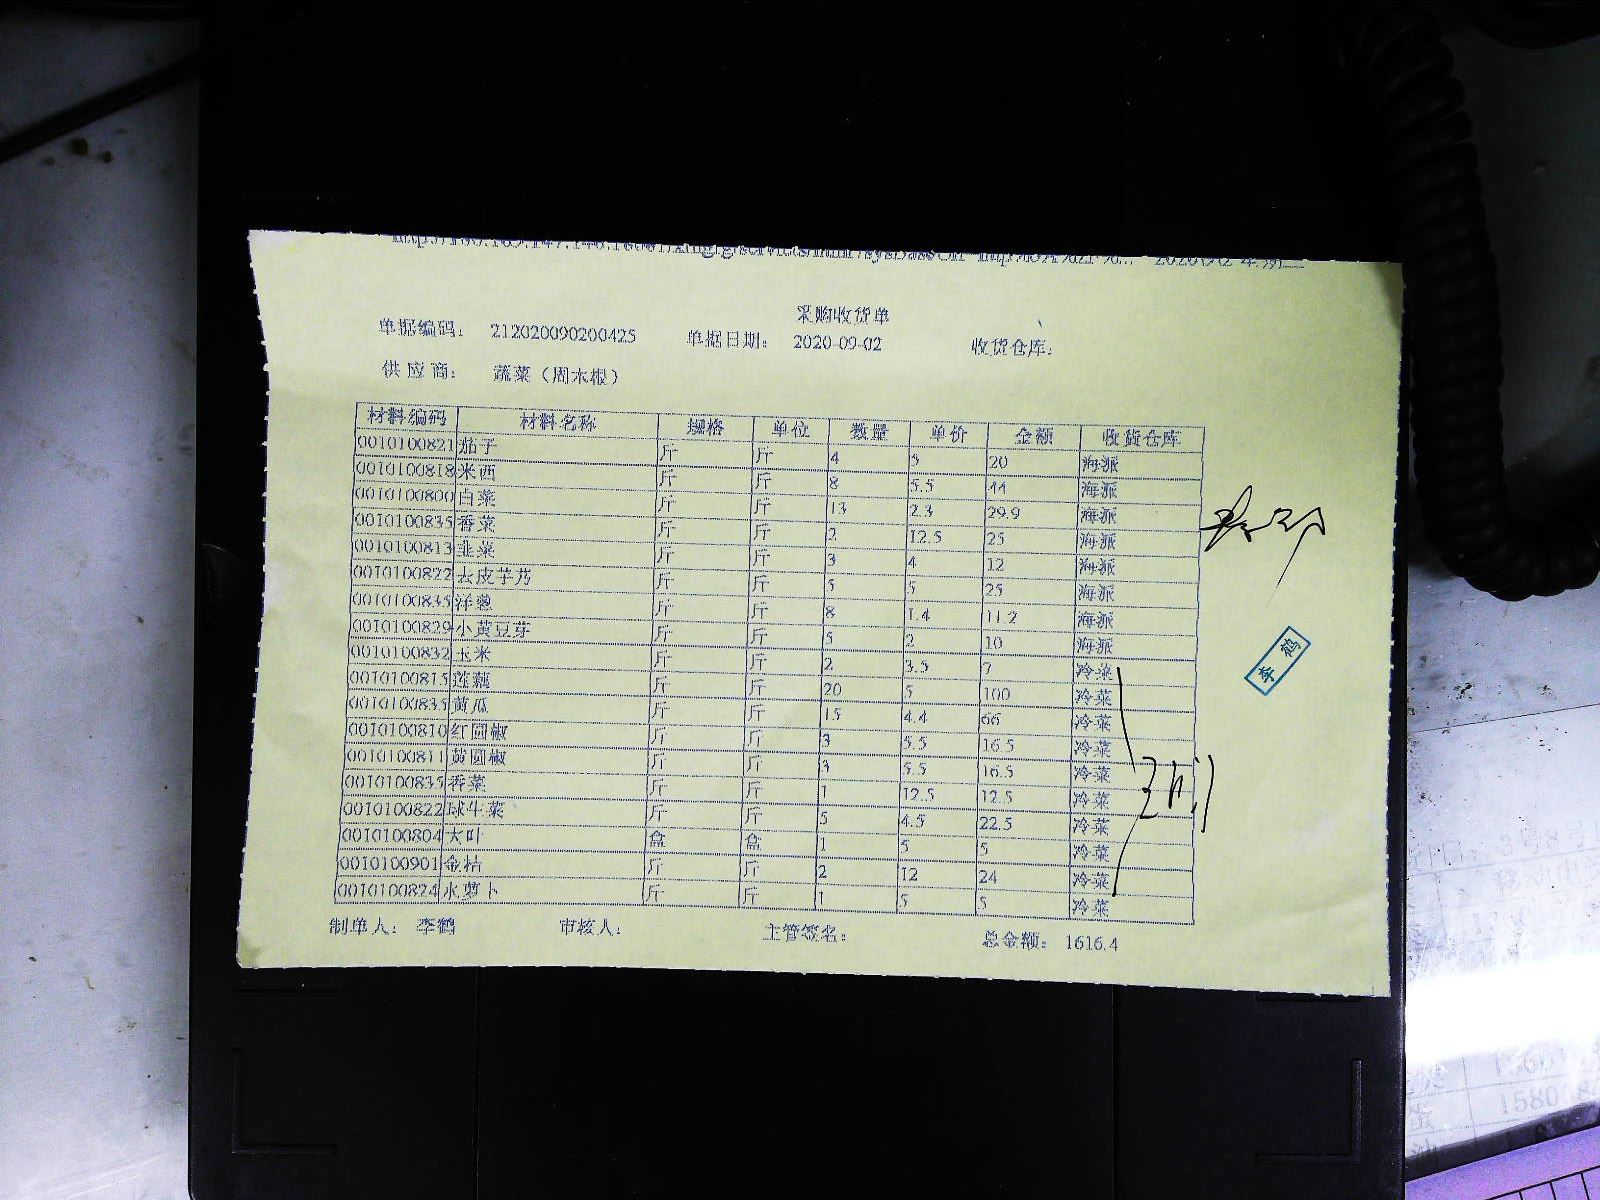 采购收货单
单据编码： 212020090200425 单据日期： 2020-09-02 收货仓库：
供应商： 蔬菜（周木根）
材料编码 材料名称 规格 单位 数量 单价 金额 收货仓库
0010100821 茄子 斤 斤 4 5 20 海派
0010100818 米西 斤 斤 8 5.5 44 海派
0010100800 白菜 斤 斤 13 2.3 29.9 海派
0010100835 香菜 斤 斤 2 12.5 25 海派
0010100813 韭菜 斤 斤 3 4 12 海派
0010100822 去皮芋艿 斤 斤 5 5 25 海派
0010100835 洋葱 斤 斤 8 1.4 11.2 海派
0010100829 小黄豆芽 斤 斤 5 2 10 海派
0010100832 玉米 斤 斤 2 3.5 7 冷菜
0010100815 莲藕 斤 斤 20 5 100 冷菜
0010100835 黄瓜 斤 斤 15 4.4 66 冷菜
0010100810 红圆椒 斤 斤 3 5.5 16.5 冷菜
0010100811 黄圆椒 斤 斤 3 5.5 16.5 冷菜
0010100835 香菜 斤 斤 1 12.5 12.5 冷菜
0010100822 球生菜 斤 斤 5 4.5 22.5 冷菜
0010100804 大叶 盒 盒 1 5 5 冷菜
0010100901 金桔 斤 斤 2 12 24 冷菜
0010100824 水萝卜 斤 斤 1 5 5 冷菜
制单人： 李鹤 审核人： 主管签名： 总金额： 1616.4
李鹤